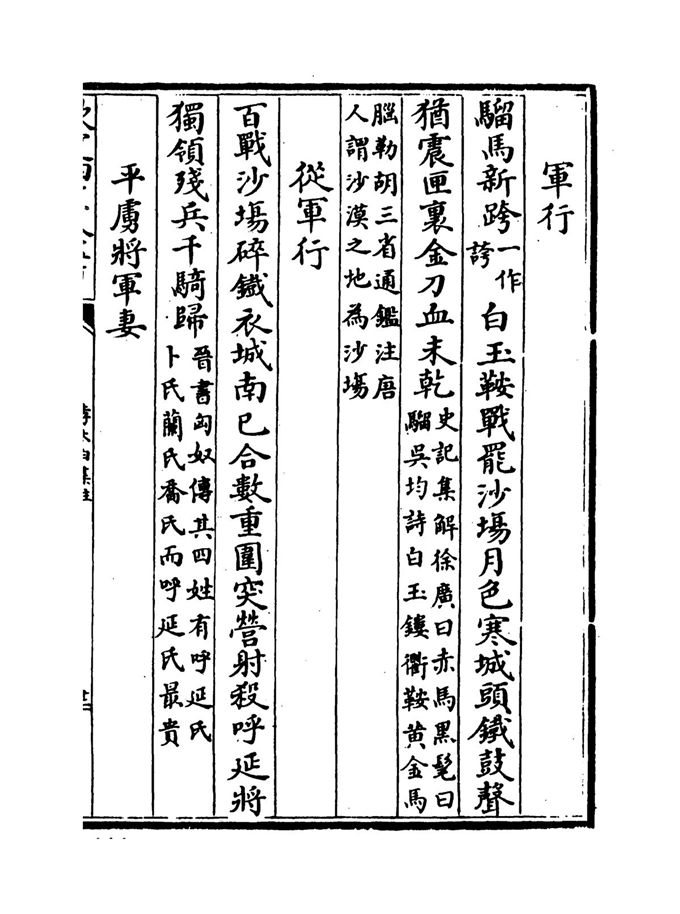 軍行
騮馬新跨一作誇白玉鞍戰罷沙塲月色寒城頭鐵鼓聲
猶震匣裏金刀血未乾史記集解徐廣曰赤馬黑髦曰騮吳均詩白玉鏤衢鞍黄金馬
腦勒胡三省通鑑注唐人謂沙漠之地為沙塲
從軍行
百戰沙塲碎鐵衣城南已合數重圍突營射殺呼延將
獨領殘兵千騎歸晉書匈奴傳其四姓有呼延氏卜氏蘭氏喬氏而呼延氏最貴
平虜將軍妻
李太白集注